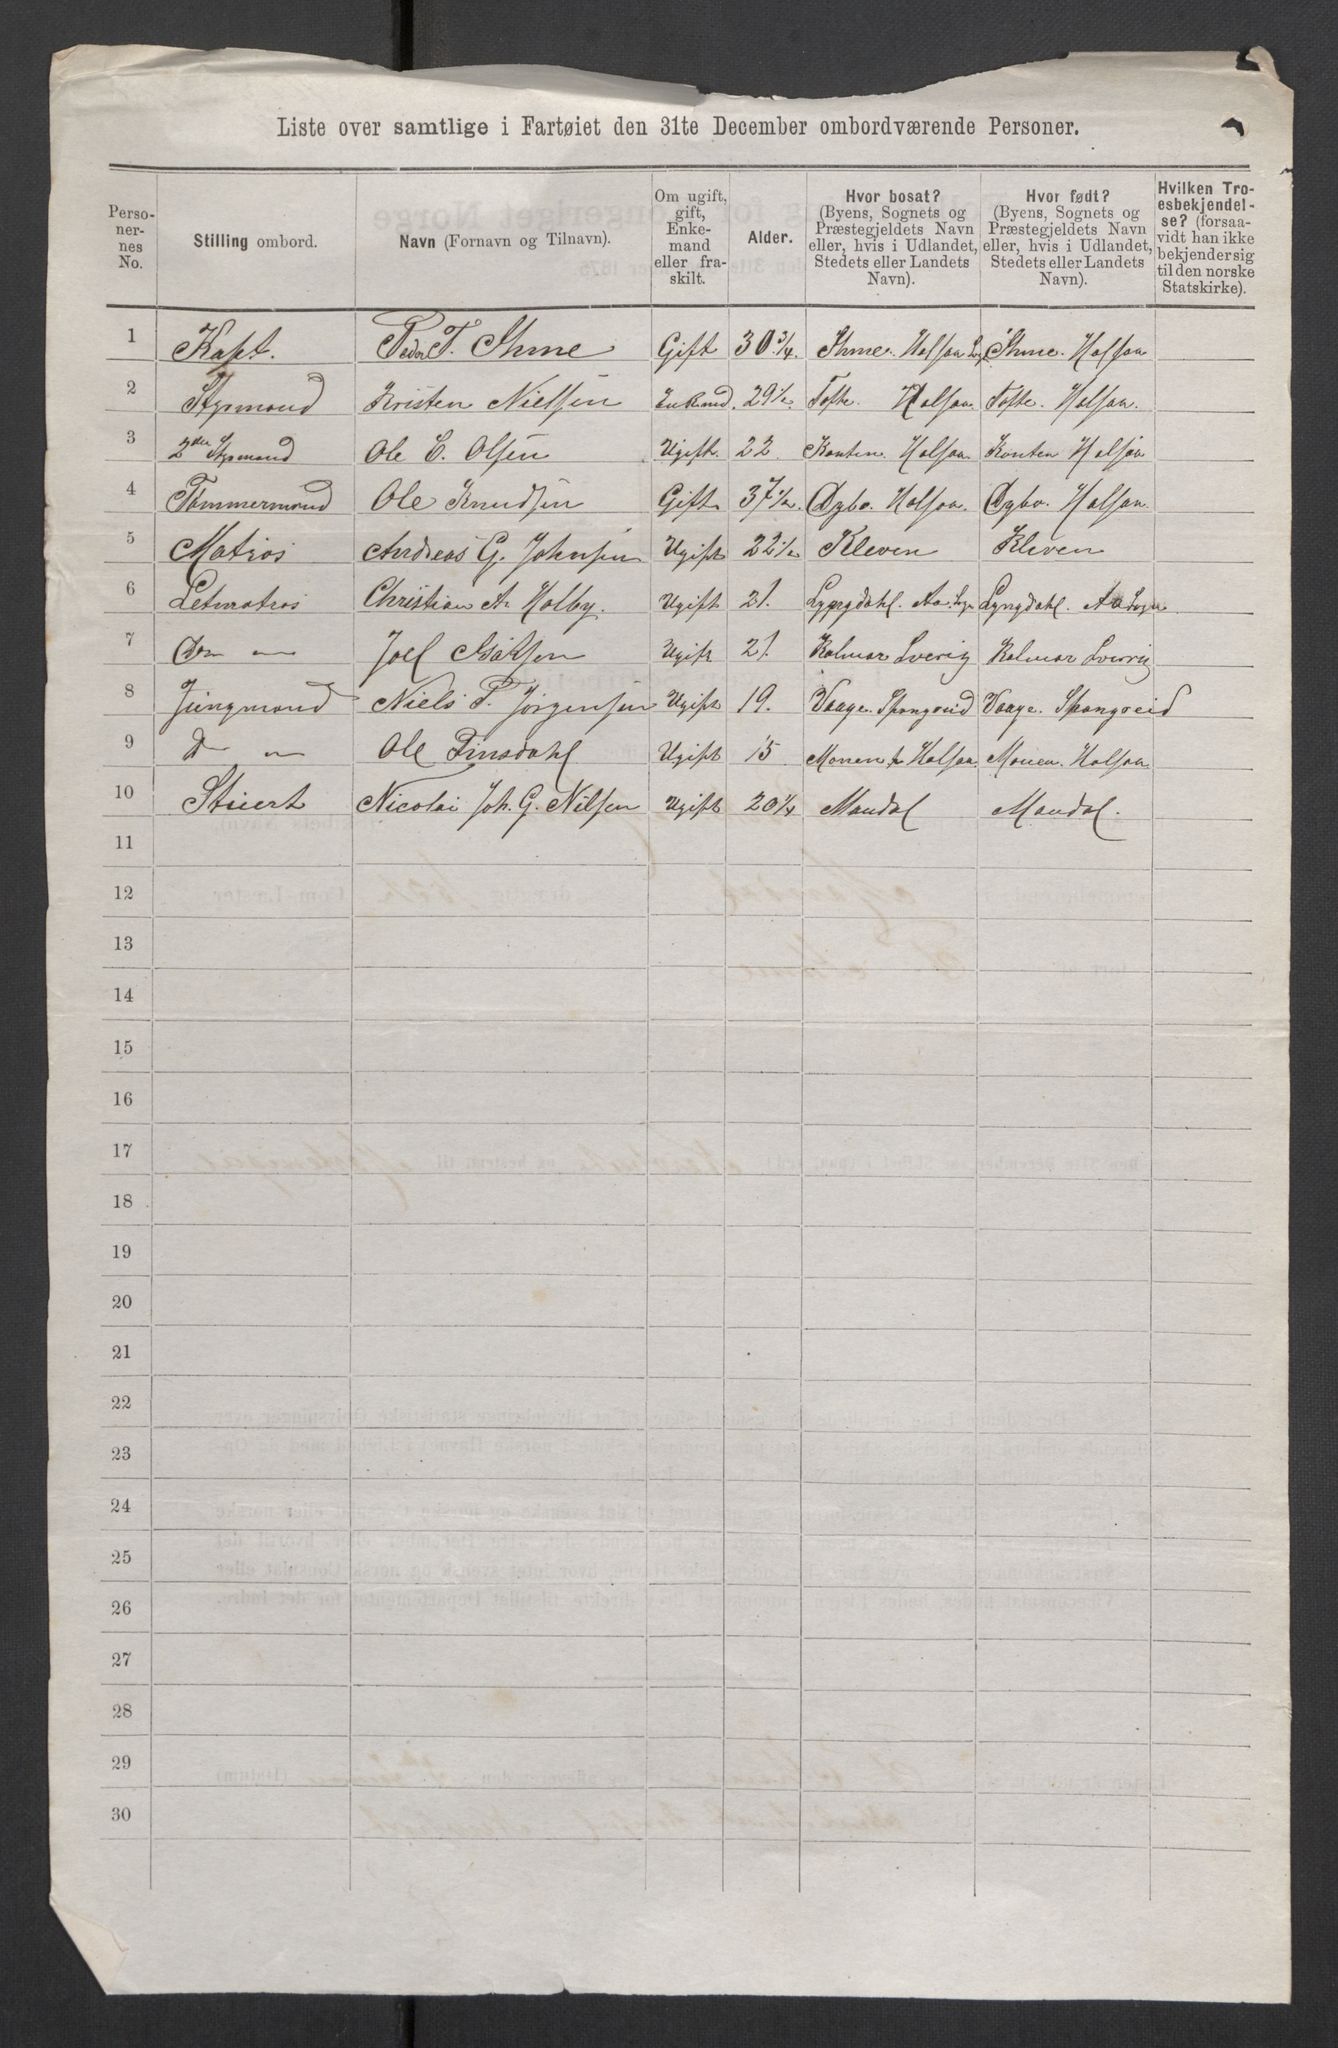 Liste over samtlige i Fartøiet den 31te December ombordværende Personer.
Perso-nernes No. | Stilling ombord. | Navn (Fornavn og Tilnavn). | Om ugift, gift, Enkemand eller fraskilt. | Alder. | Hvor bosat? (Byens, Sognets og Præstegjeldets Navn eller, hvis i Udlandet, Stedets eller Landets Navn). | Hvor født? (Byens, Sognets og Præstegjeldets Navn eller, hvis i Udlandet, Stedets eller Landets Navn). | Hvilken Troesbekjendelse? (forsaavidt han ikke bekjender sig til den norske Statskirke).
1 Kapt. Peder T. Ihme Gift 30 3/4. Ihme. Halsaa Ihme. Halsaa
2 Styrmand Kristen Nielsen Enkemd. 29 1/2. Tofte. Halsaa Tofte. Halsaa.
3 2den Styrmand Ole C. Olsen Ugift. 22 Kouten Halsaa Kouten Halsaa
4 Tømmermand Ole Knudsen Gift. 37 1/2. Dybo. Halsaa. Dybo. Halsaa.
5 Matros Andreas G. Johnsen Ugift 22 1/2 Kleven Kleven
6 Letmatros Christian A. Holby. Ugift 21. Lyngdahl. Aa Sogn Lyngdahl. Aa Sogn
7 Do — Joel Ugift 21. Kalmar Sverig Kalmar Sverrig
8 Jungmand Niels T. Jørgensen Ugift 19. Vaage. Spangreid Vaage. Spangreid
9 Do — Ole Finsdahl Ugift 15 Monen Halsaa Monen. Halsaa
10 Stuert Nicolai Joh. G. Nilsen Ugift 20 1/4 Mandal Mandal.
11
12
13
14
15
16
17
18
19
20
21
22
23
24
25
26
27
28
29
30